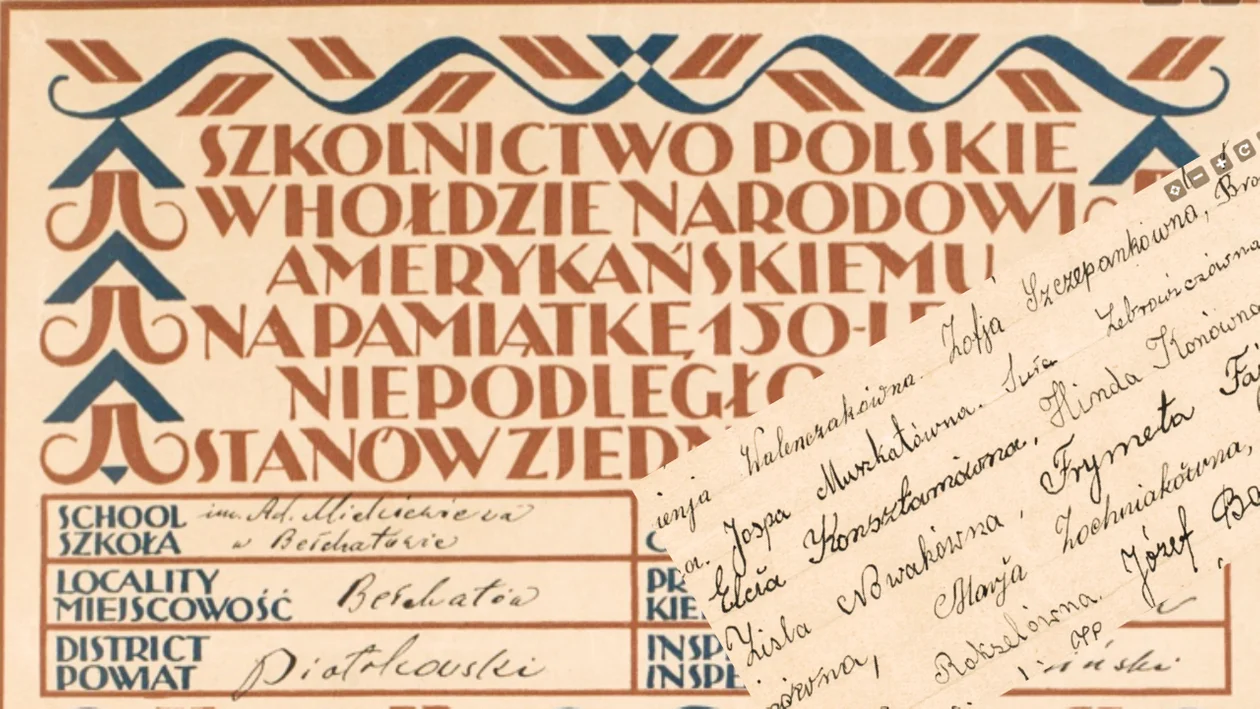 SZKOLNICTWO POLSKIE
W HOŁDZIE NARODOWI
AMERYKAŃSKIEMU
NA PAMIĄTKĘ 150-L
NIEPODLEGŁO
STANÓW ZJEDN
SCHOOL im. Ad. Mickiewicza
SZKOŁA w Bełchatowie
LOCALITY
MIEJSCOWOŚĆ Bełchatów
DISTRICT
POWIAT Piotrkowski
PR
KIE
INSP
INSPE
iński
Walenczakówna. Zofja Szczepankówna, Bro
Jospa Muszkatówna. Sura Zebrowiczówna
Elcia Konsztamówna, Hinda Konówna
Zisla Nowakówna, Frymeta Faj
Marja Zochniakówna,
Rokselówna. Józef Bo